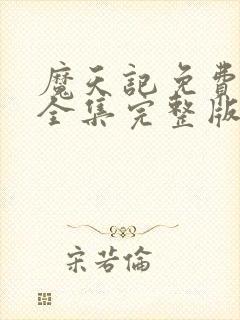 魔天記免費
全集完整版
宋若倫